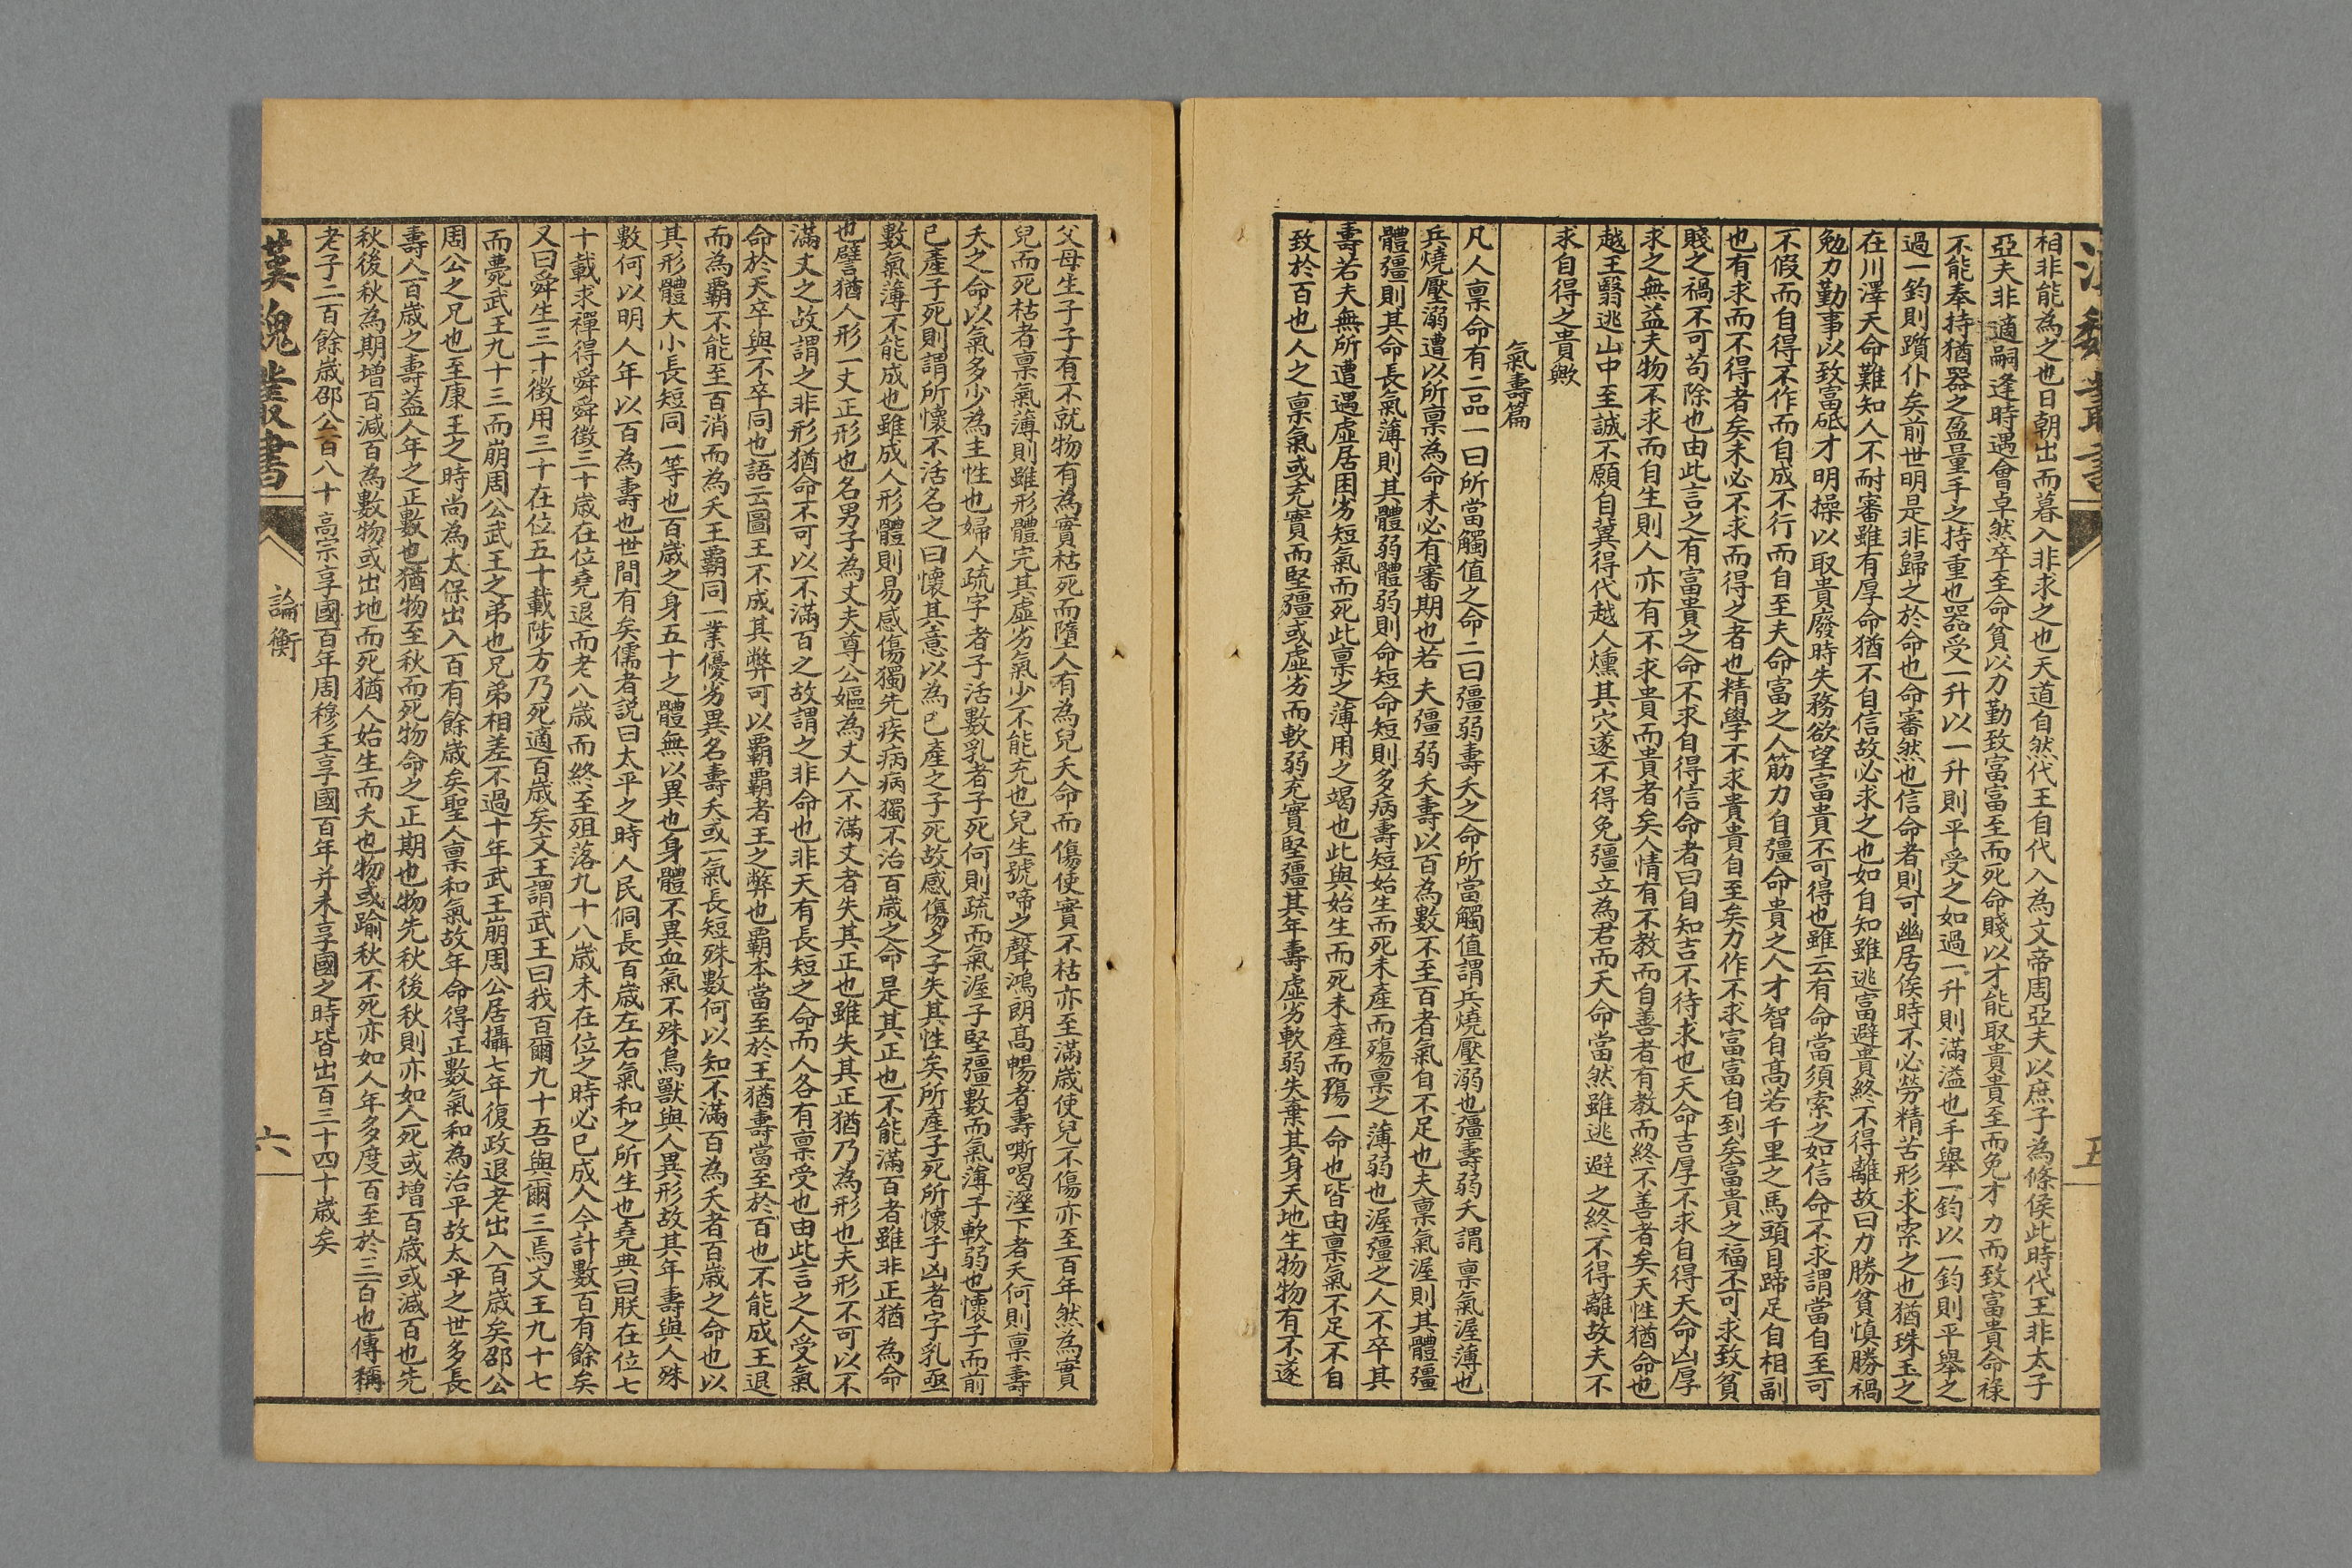 相非能為之也日朝出而暮入非求之也天道自然代王自代入為文帝周亞夫以庶子為條侯此時代王非太子
亞夫非適嗣逢時遇會卓然卒至命貧以力勤致富富至而死命賤以才能取貴貴至而免才力而致富貴命祿
不能奉持猶器之盈量手之持重也器受一升以一升則平受之如過一升則滿溢也手舉一鈞以一鈞則平舉之
過一鈞則躓仆矣前世明是非歸之於命也命審然也信命者則可幽居俟時不必勞精苦形求索之也猶珠玉之
在川澤天命難知人不耐審雖有厚命猶不自信故必求之也如自知雖逃富避貴終不得離故曰力勝貧慎勝禍
勉力勤事以致富砥才明操以取貴廢時失務欲望富貴不可得也雖云有命當須索之如信命不求謂當自至可
不假而自得不作而自成不行而自至夫命富之人筋力自彊命貴之人才智自高若千里之馬頭目蹄足自相副
也有求而不得者矣未必不求而得之者也精學不求貴貴自至矣力作不求富富自到矣富貴之福不可求致貧
賤之禍不可苟除也由此言之有富貴之命不求自得信命者曰自知吉不待求也天命吉厚不求自得天命凶厚
求之無益夫物不求而自生則人亦有不求貴而貴者矣人情有不教而自善者有教而終不善者矣天性猶命也
越王翳逃山中至誠不願自冀得代越人燻其穴遂不得免彊立為君而天命當然雖逃避之終不得離故夫不
求自得之貴歟
氣壽篇
凡人稟命有二品一曰所當觸值之命二曰彊弱壽夭之命所當觸值謂兵燒壓溺也彊壽弱夭謂稟氣渥薄也
兵燒壓溺遭以所稟為命未必有審期也若夫彊弱夭壽以百為數不至百者氣自不足也夫稟氣渥則其體彊
體彊則其命長氣薄則其體弱體弱則命短命短則多病壽短始生而死未產而殤稟之薄弱也渥彊之人不卒其
壽若夫無所遭遇虛居困劣短氣而死此稟之薄用之竭也此與始生而死未產而殤一命也皆由稟氣不足不自
致於百也人之稟氣或充實而堅彊或虛劣而軟弱充實堅彊其年壽虛劣軟弱失棄其身天地生物物有不遂
父母生子子有不就物有為實枯死而墮人有為兒夭命而傷使實不枯亦至滿歲使兒不傷亦至百年然為實
兒而死枯者稟氣薄則雖形體完其虛劣氣少不能充也兒生號啼之聲鴻朗高暢者壽嘶喝溼下者夭何則稟壽
夭之命以氣多少為主性也婦人疏字者子活數乳者子死何則疏而氣渥子堅彊數而氣薄子軟弱也懷子而前
已產子死則謂所懷不活名之曰懷其意以為已產之子死故感傷之子失其性矣所產子死所懷子凶者字乳亟
數氣薄不能成也雖成人形體則易感傷獨先疾病病獨不治百歲之命是其正也不能滿百者雖非正猶為命
也譬猶人形一丈正形也名男子為丈夫尊公嫗為丈人不滿丈者失其正也雖失其正猶乃為形也夫形不可以不
滿丈之故謂之非形猶命不可以不滿百之故謂之非命也非天有長短之命而人各有稟受也由此言之人受氣
命於天卒與不卒同也語云圖王不成其弊可以霸霸者王之弊也霸本當至於王猶壽當至於百也不能成王退
而為霸不能至百消而為夭王霸同一業優劣異名壽夭或一氣長短殊數何以知不滿百為夭者百歲之命也以
其形體大小長短同一等也百歲之身五十之體無以異也身體不異血氣不殊鳥獸與人異形故其年壽與人殊
數何以明人年以百為壽也世間有矣儒者說曰太平之時人民侗長百歲左右氣和之所生也堯典曰朕在位七
十載求禪得舜舜徵三十歲在位堯退而老八歲而終至殂落九十八歲未在位之時必已成人今計數百有餘矣
又曰舜生三十徵用三十在位五十載陟方乃死適百歲矣文王謂武王曰我百爾九十吾與爾三焉文王九十七
而薨武王九十三而崩周公武王之弟也兄弟相差不過十年武王崩周公居攝七年復政退老出入百歲矣邵公
周公之兄也至康王之時尚為太保出入百有餘歲矣聖人稟和氣故年命得正數氣和為治平故太平之世多長
壽人百歲之壽蓋人年之正數也猶物至秋而死物命之正期也物先秋後秋則亦如人死或增百歲或減百也先
秋後秋為期增百減百為數物或出地而死猶人始生而夭也物或踰秋不死亦如人年多度百至於三百也傳稱
老子二百餘歲邵公百八十高宗享國百年周穆王享國百年并未享國之時皆出百三十四十歲矣
漢魏叢書
論衡
六